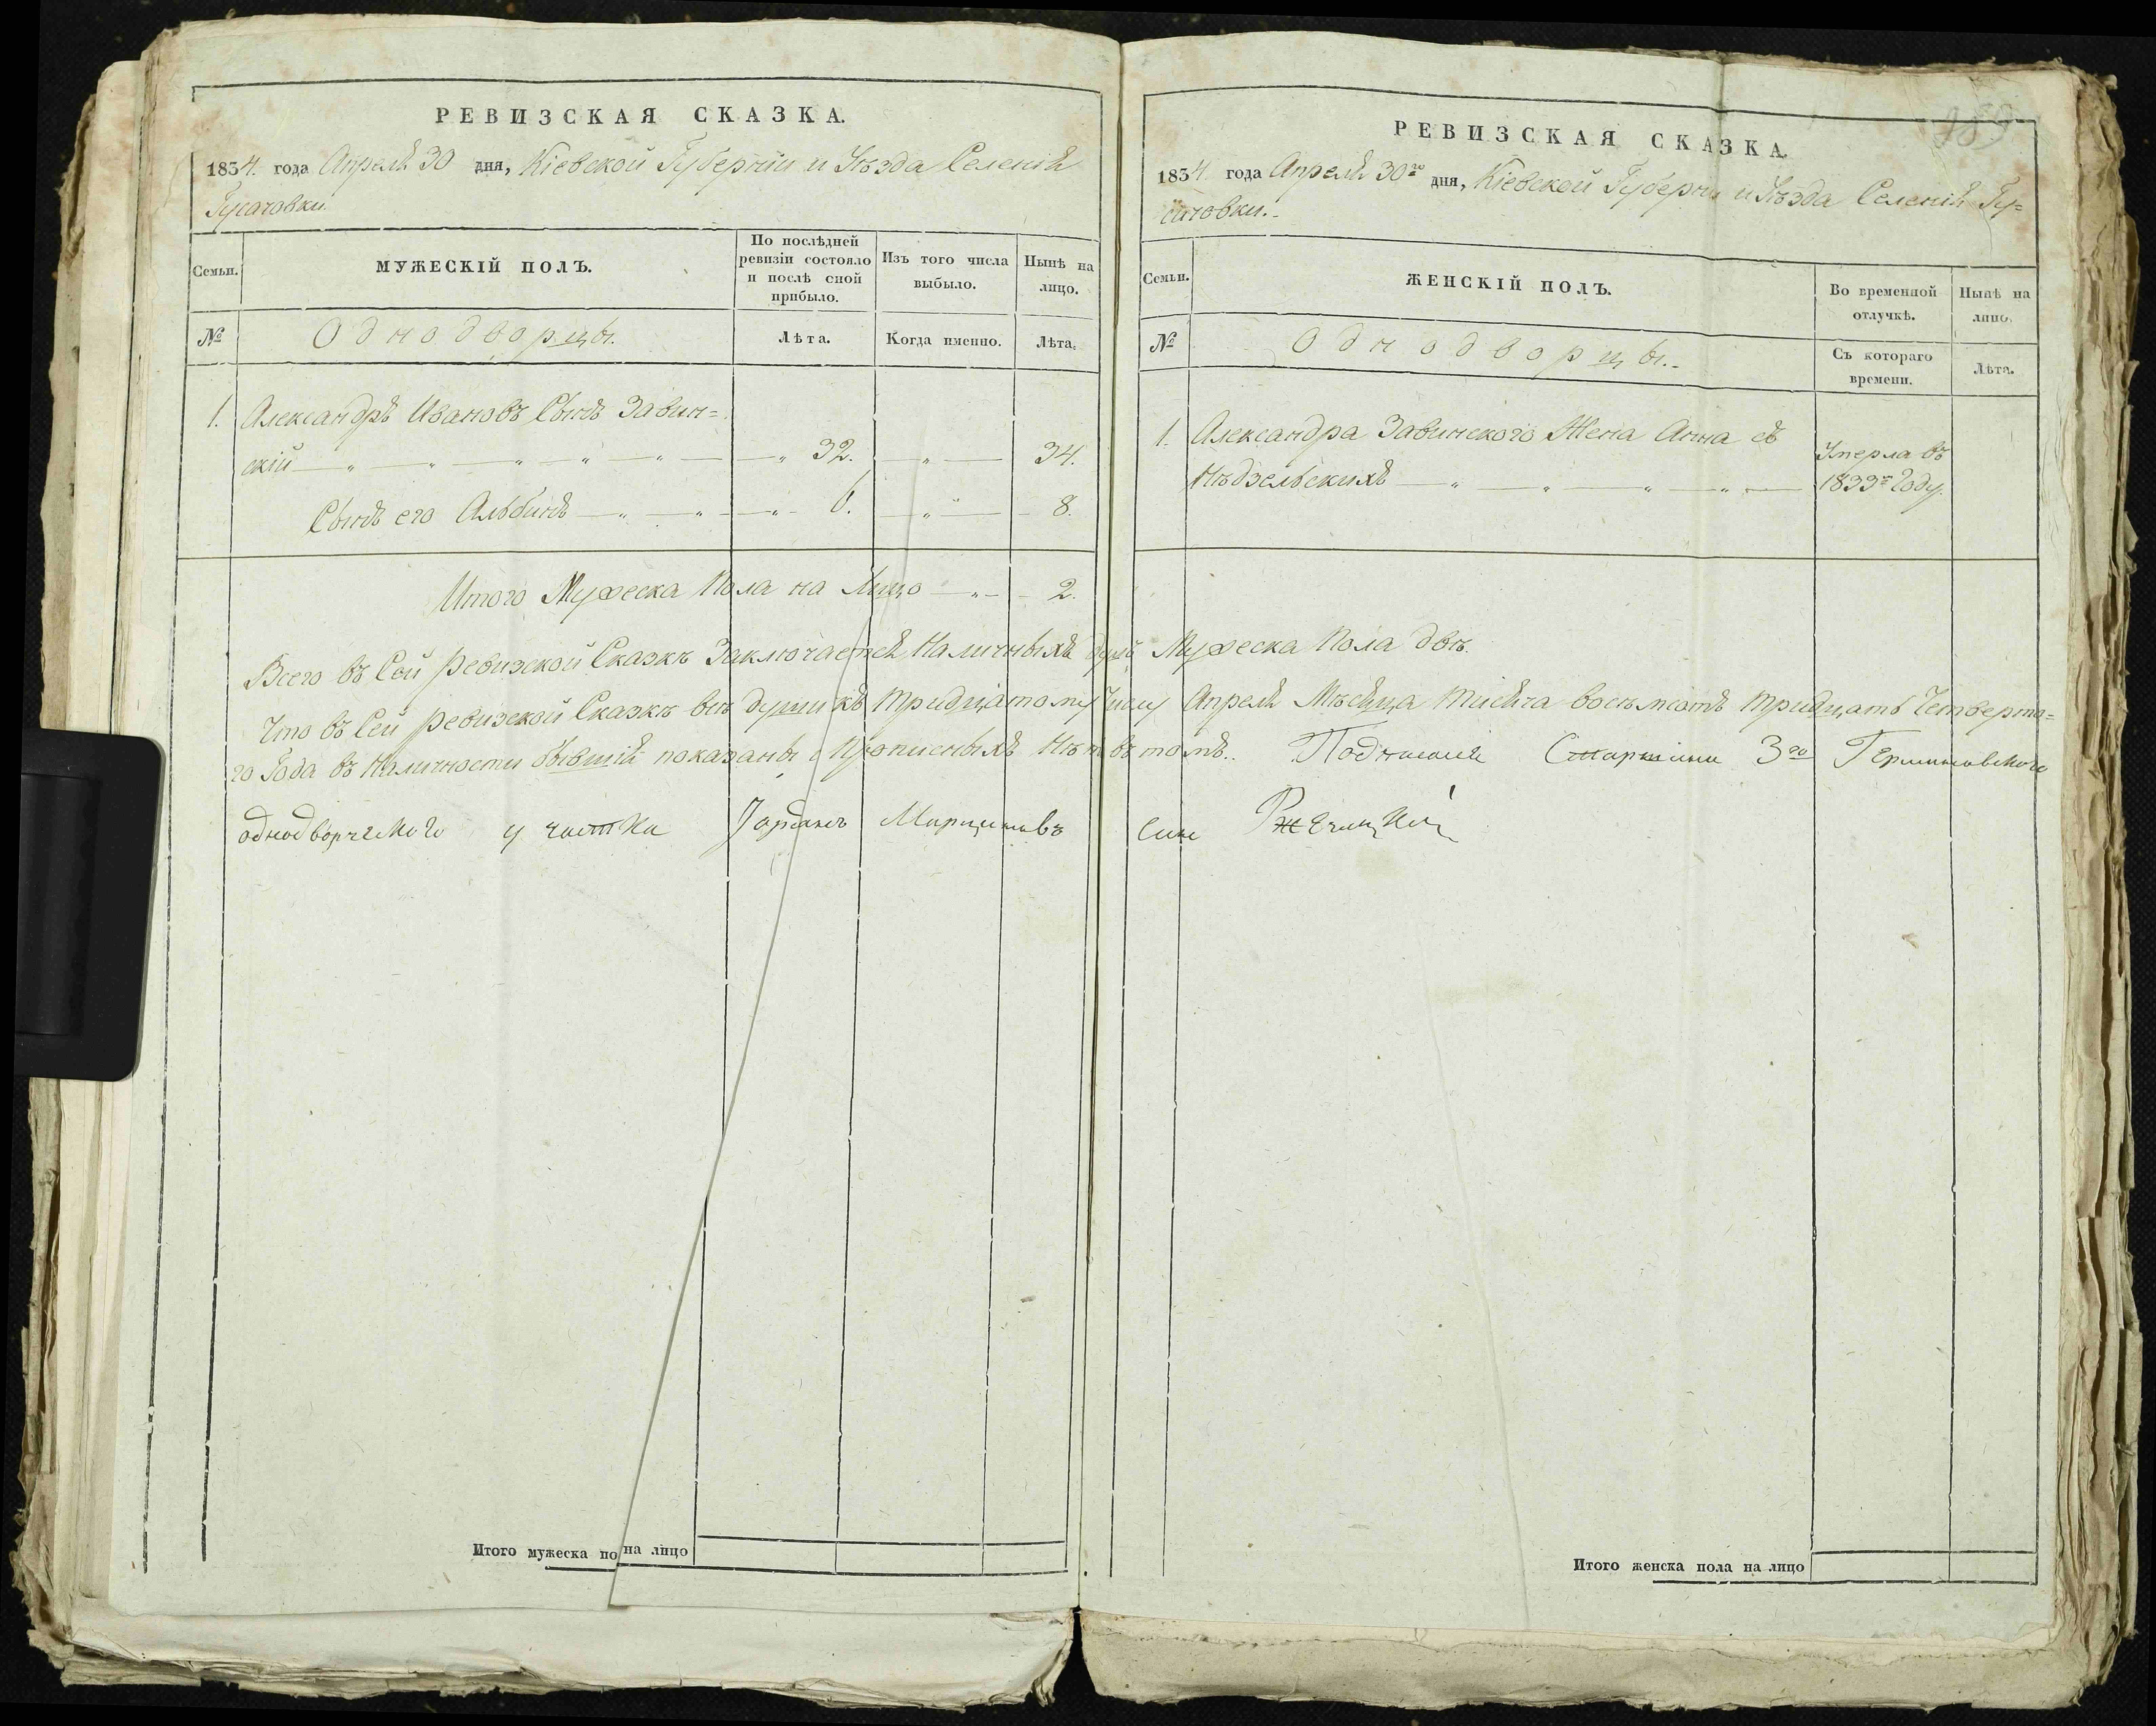 РЕВИЗСКАЯ СКАЗКА.
1834. года Апреля 30 дня, Кіевской Губерніи и Уѣзда Селенія
Гусачовки.
Семьи.
МУЖЕСКІЙ ПОЛЪ.
По послѣдней
ревизіи состояло
и послѣ оной
прибыло.
Изъ того числа
выбыло.
Нынѣ на
лицо.
№
Однодворцы.
Лѣта.
Когда именно.
Лѣта.
1. Александръ Ивановъ Сынъ Завин=
скій 32. 34.
Сынъ его Альбинъ 6. 8.
Итого Мужеска Пола на Лицо 2.
РЕВИЗСКАЯ СКАЗКА.
1834 года Апреля 30го дня, Кіевской Губерніи и Уѣзда Селенія Гу=
сачовки.
Семьи.
ЖЕНСКІЙ ПОЛЪ.
Во временной
отлучкѣ.
Нынѣ на
лицо.
№
Однодворцы.
Съ котораго
времени.
Лѣта.
1. Александра Завинского Жена Анна съ
Нѣдзельскихъ
Умерла въ
1833м Году.
Всего въ Сей Ревизской Сказкѣ Заключается Наличныхъ душъ Мужеска Пола двѣ.
Что въ Сей Ревизской Сказкѣ всѣ души къ тридцатому числу Апреля Мѣсяца тисяча восъмсотъ тридцать Четверто=
го Года въ Наличности бывшія показаны и прописныхъ Нѣт въ томъ.. Старшина 3го
однодворческого участка синъ
Итого мужеска по на лицо
Итого женска пола на лицо